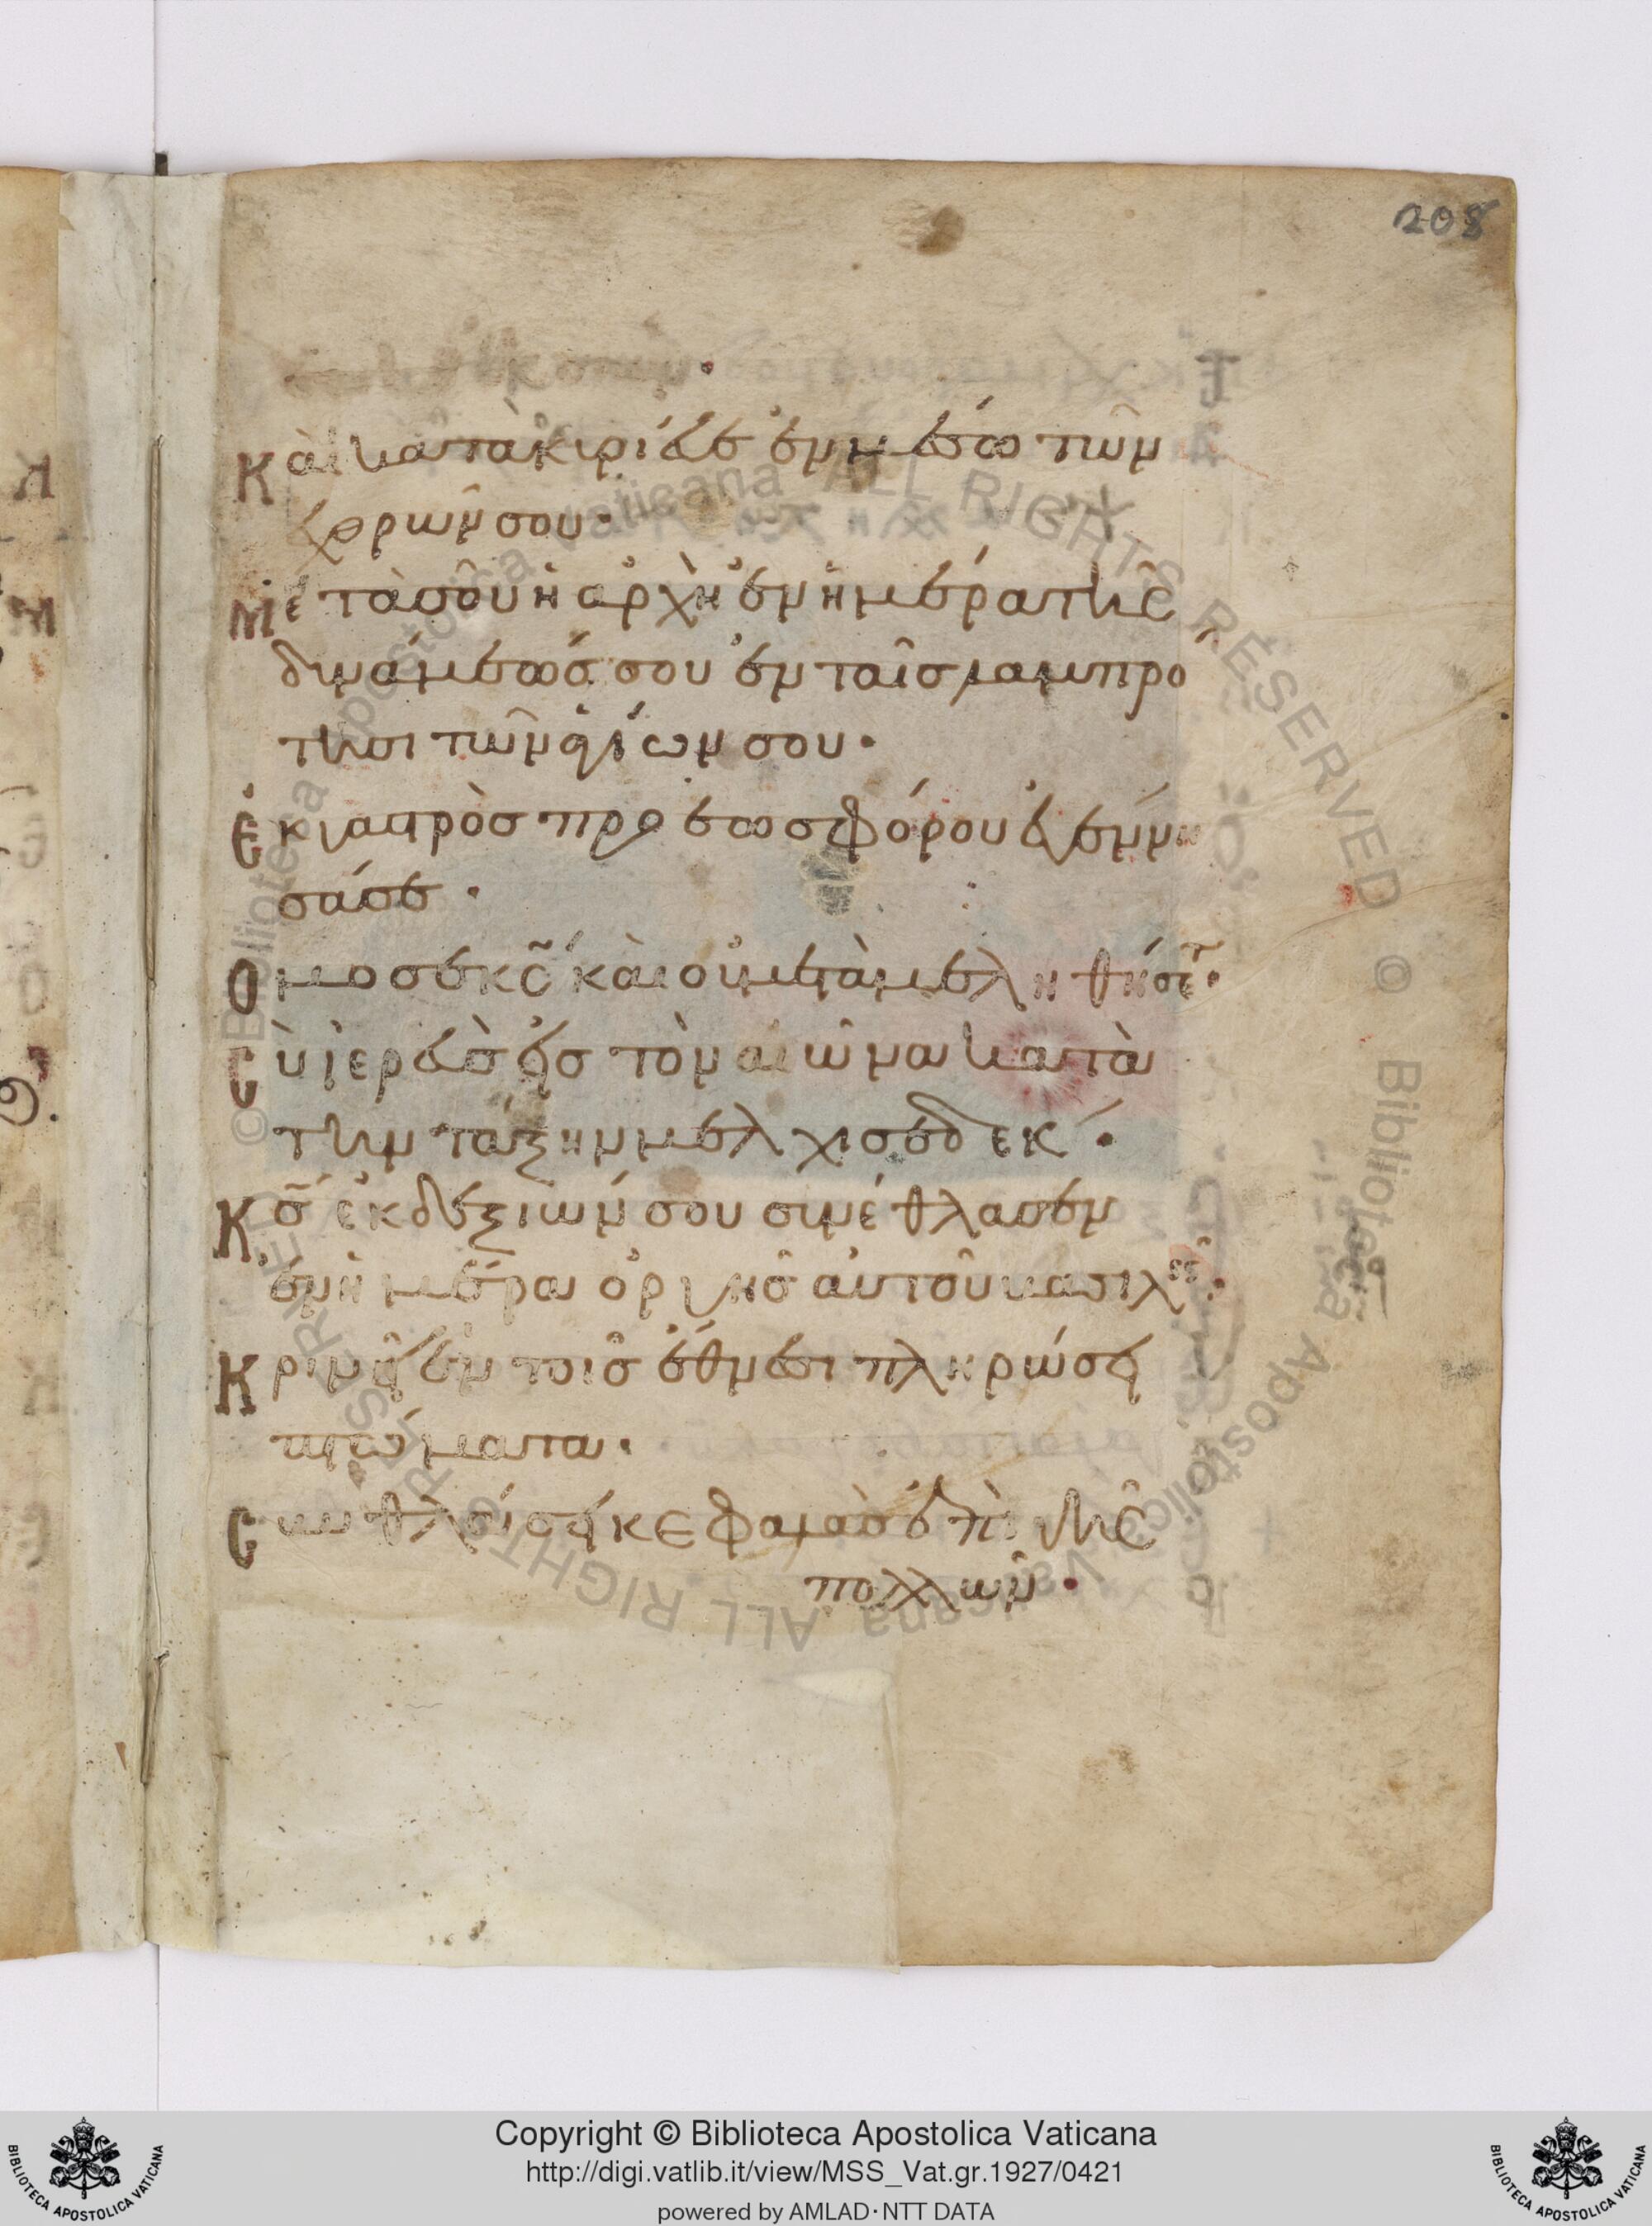 208
Καὶ κατακυρίευε ἐν μέσω τῶν
ἐχθρῶν σου·
Μετὰ σοῦ ἡ ἀρχὴ ἐν ἡμέρα τῆς
δυνάμεώς σου ἐν ταῖς λαμπρο
τησι τῶν ἁγίων σου·
Ἐκ γαστρὸς πρὸ ἑωσφόρου ἐγέννη
σά σε·
Ὤμοσε κς καὶ οὐ μεταμεληθήσετ·
Σὺ ἱερεὺς εἶς τὸν αἰῶνα κατὰ
τὴν τάξην μελχισεδέκ·
Κς ἐκ δεξιῶν σου συνέθλασεν
ἐν ἡμέρα ὀργῆς αὐτοῦ βασιλεῖς·
Κρινεῖ ἐν τοῖς ἔθνεσι πληρώσει
πτώματα·
Συνθλάσει κεφαλὰς ἐπὶ γῆς
πολλῶν·
© Biblioteca Apostolica Vaticana ALL RIGHTS RESERVED
© Biblioteca Apostolica Vaticana ALL RIGHTS RESERVED
Copyright © Biblioteca Apostolica Vaticana
http://digi.vatlib.it/view/MSS_Vat.gr.1927/0421
powered by AMLAD·NTT DATA
BIBLIOTECA APOSTOLICA VATICANA
BIBLIOTECA APOSTOLICA VATICANA